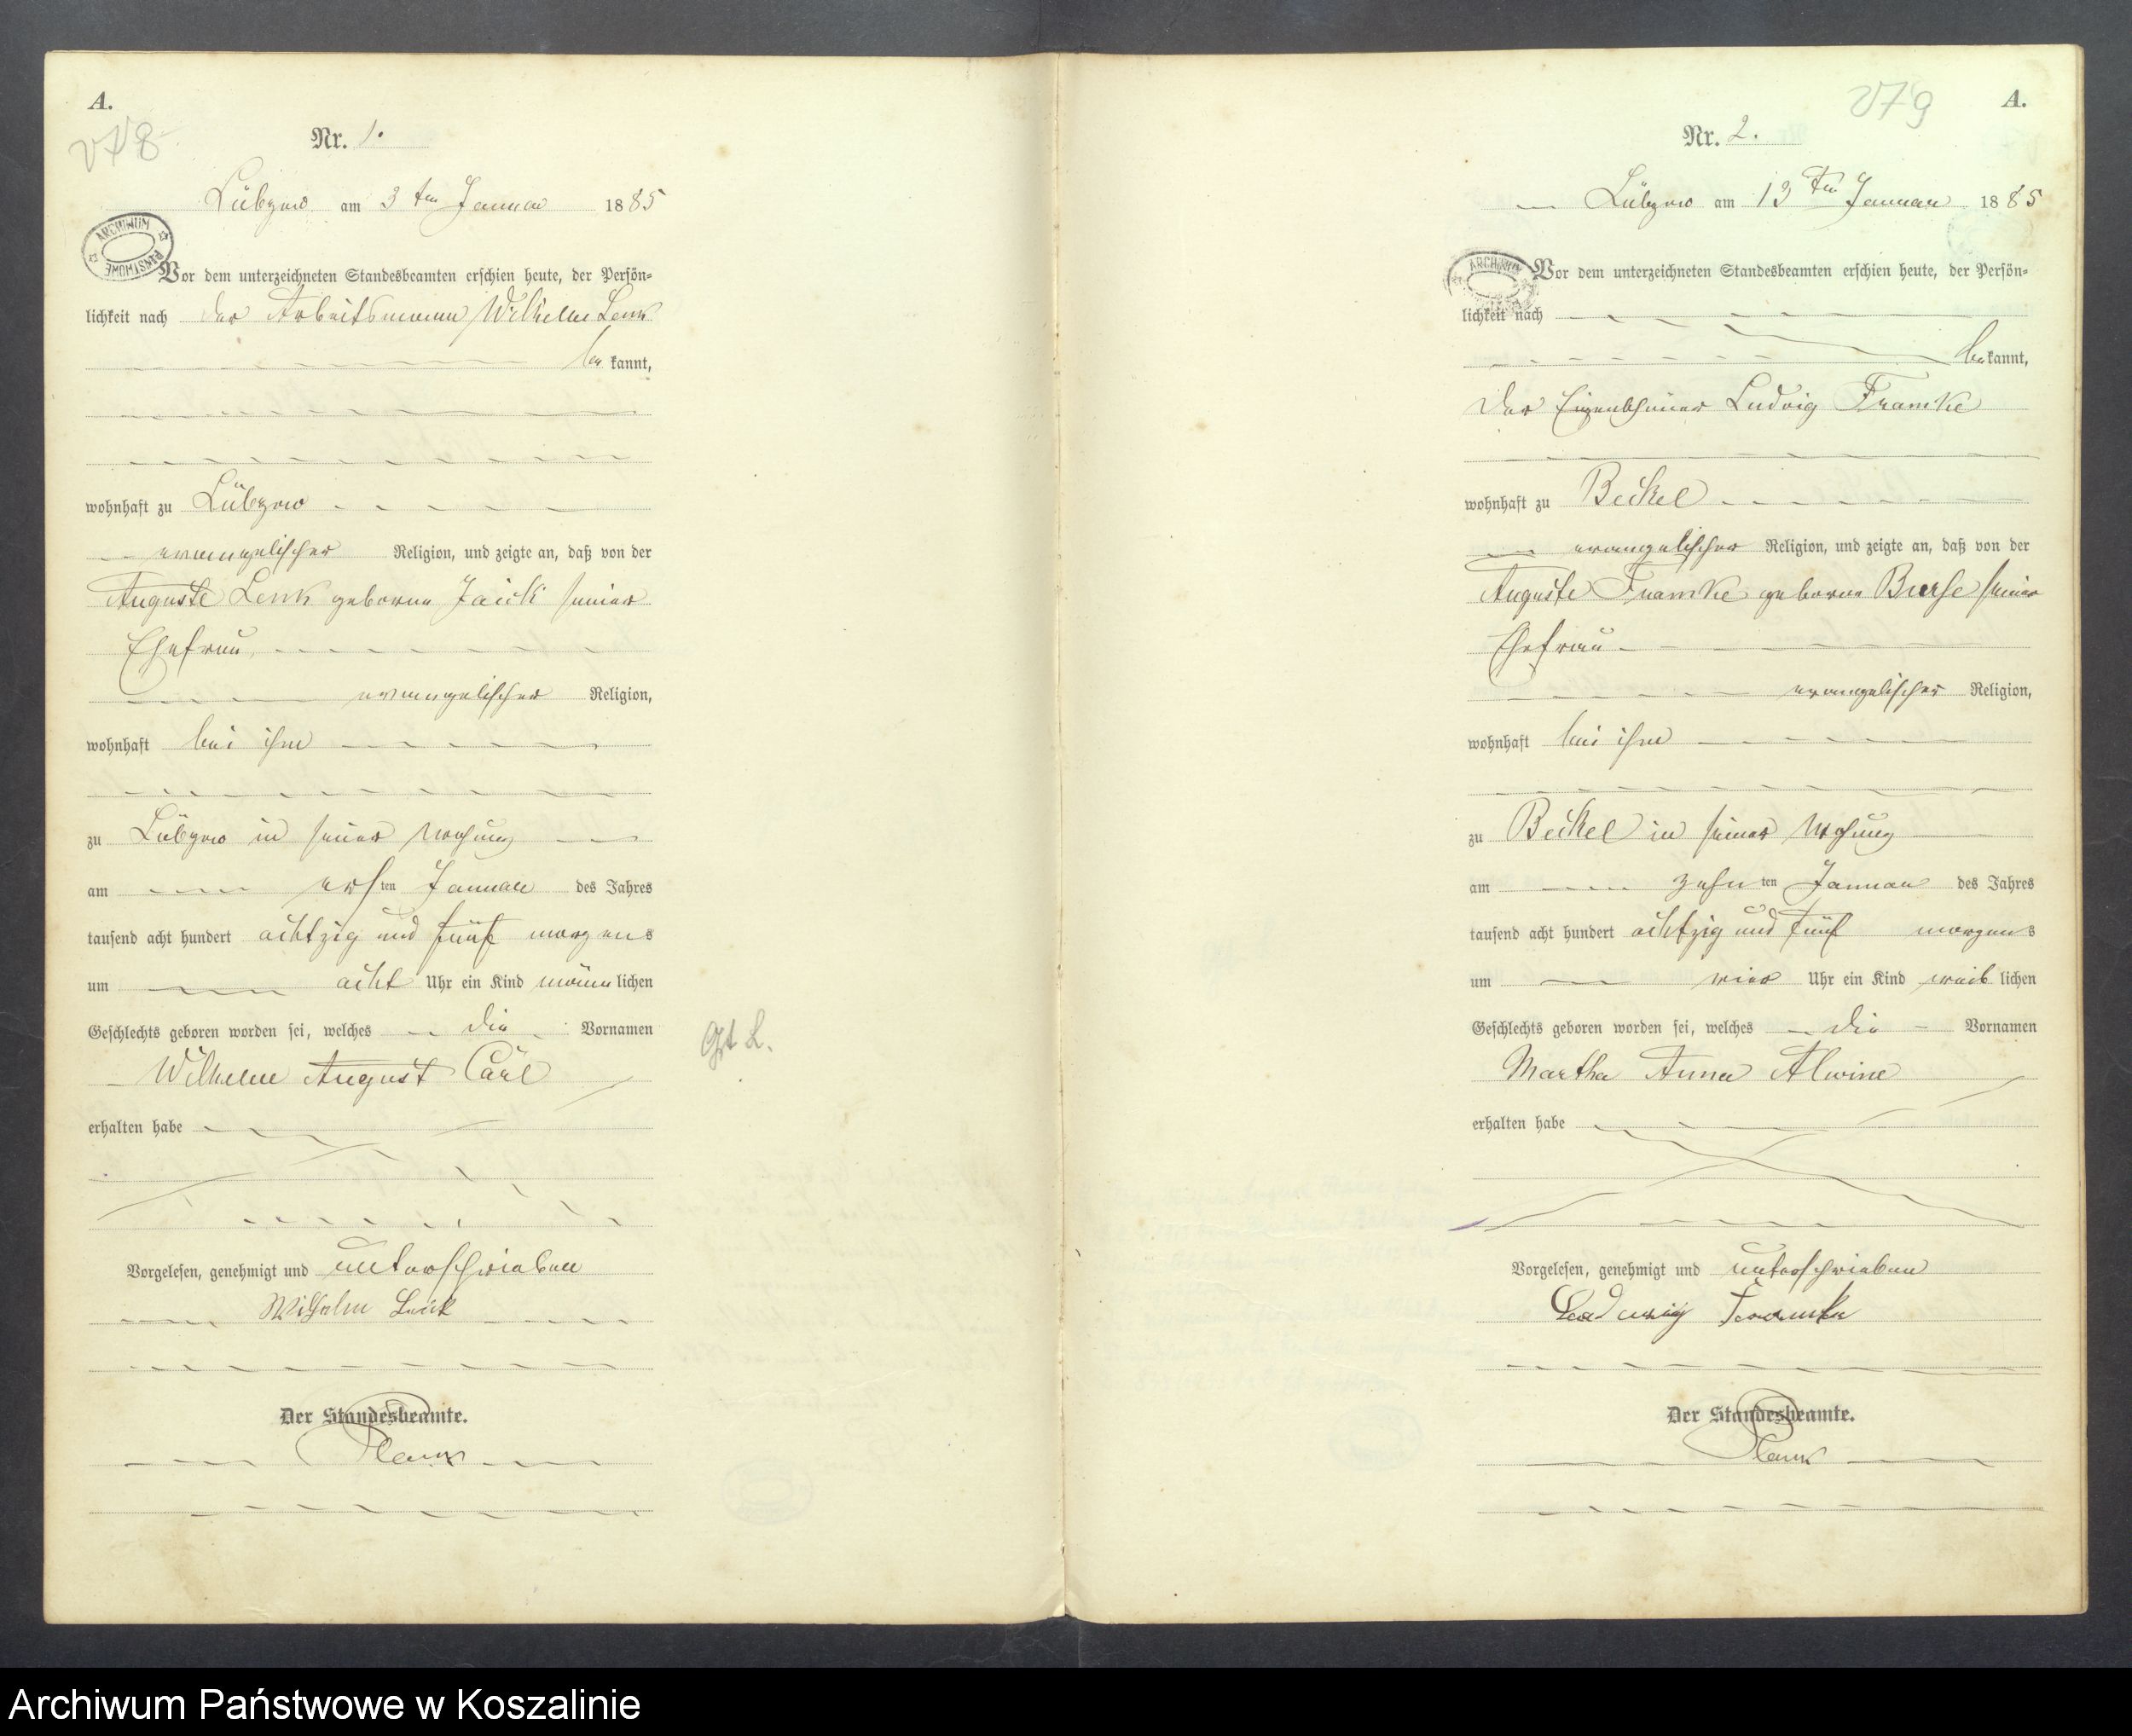 A.
Nr. 1.
Lübzow am 3ten Januar 1885
ARCHIWUM PAŃSTWOWE
Vor dem unterzeichneten Standesbeamten erschien heute, der Persön-
lichkeit nach der Arbeitsmann Wilhelm Lenk
bekannt,
wohnhaft zu Lübzow
evangelischer Religion, und zeigte an, daß von der
Auguste Lenk geborne Jaick seiner
Ehefrau
evangelischer Religion,
wohnhaft bei ihm
zu Lübzow in seiner Wohung
am ersten Januar des Jahres
tausend acht hundert achtzig und fünf morgens
um acht Uhr ein Kind männlichen
Geschlechts geboren worden sei, welches die Vornamen
Wilhelm August Carl
erhalten habe
Vorgelesen, genehmigt und unterschrieben
Wilhelm Lenk
Der Standesbeamte.
A.
279
Nr. 2.
Lübzow am 13ten Januar 1885
ARCHIWUM
Vor dem unterzeichneten Standesbeamten erschien heute, der Persön-
lichkeit nach
bekannt,
der Eigenthümer Ludwig Framke
wohnhaft zu Beckel
evangelischer Religion, und zeigte an, daß von der
Auguste Framke geborne seiner
Ehefrau
evangelischer Religion,
wohnhaft bei ihm
zu Beckel in seiner Wohung
am zehnten Januar des Jahres
tausend acht hundert achtzig und fünf morgens
um vier Uhr ein Kind weiblichen
Geschlechts geboren worden sei, welches die Vornamen
Martha Anna Alwine
erhalten habe
Vorgelesen, genehmigt und unterschrieben
Ludwig Framke
Der Standesbeamte.
Archiwum Państwowe w Koszalinie